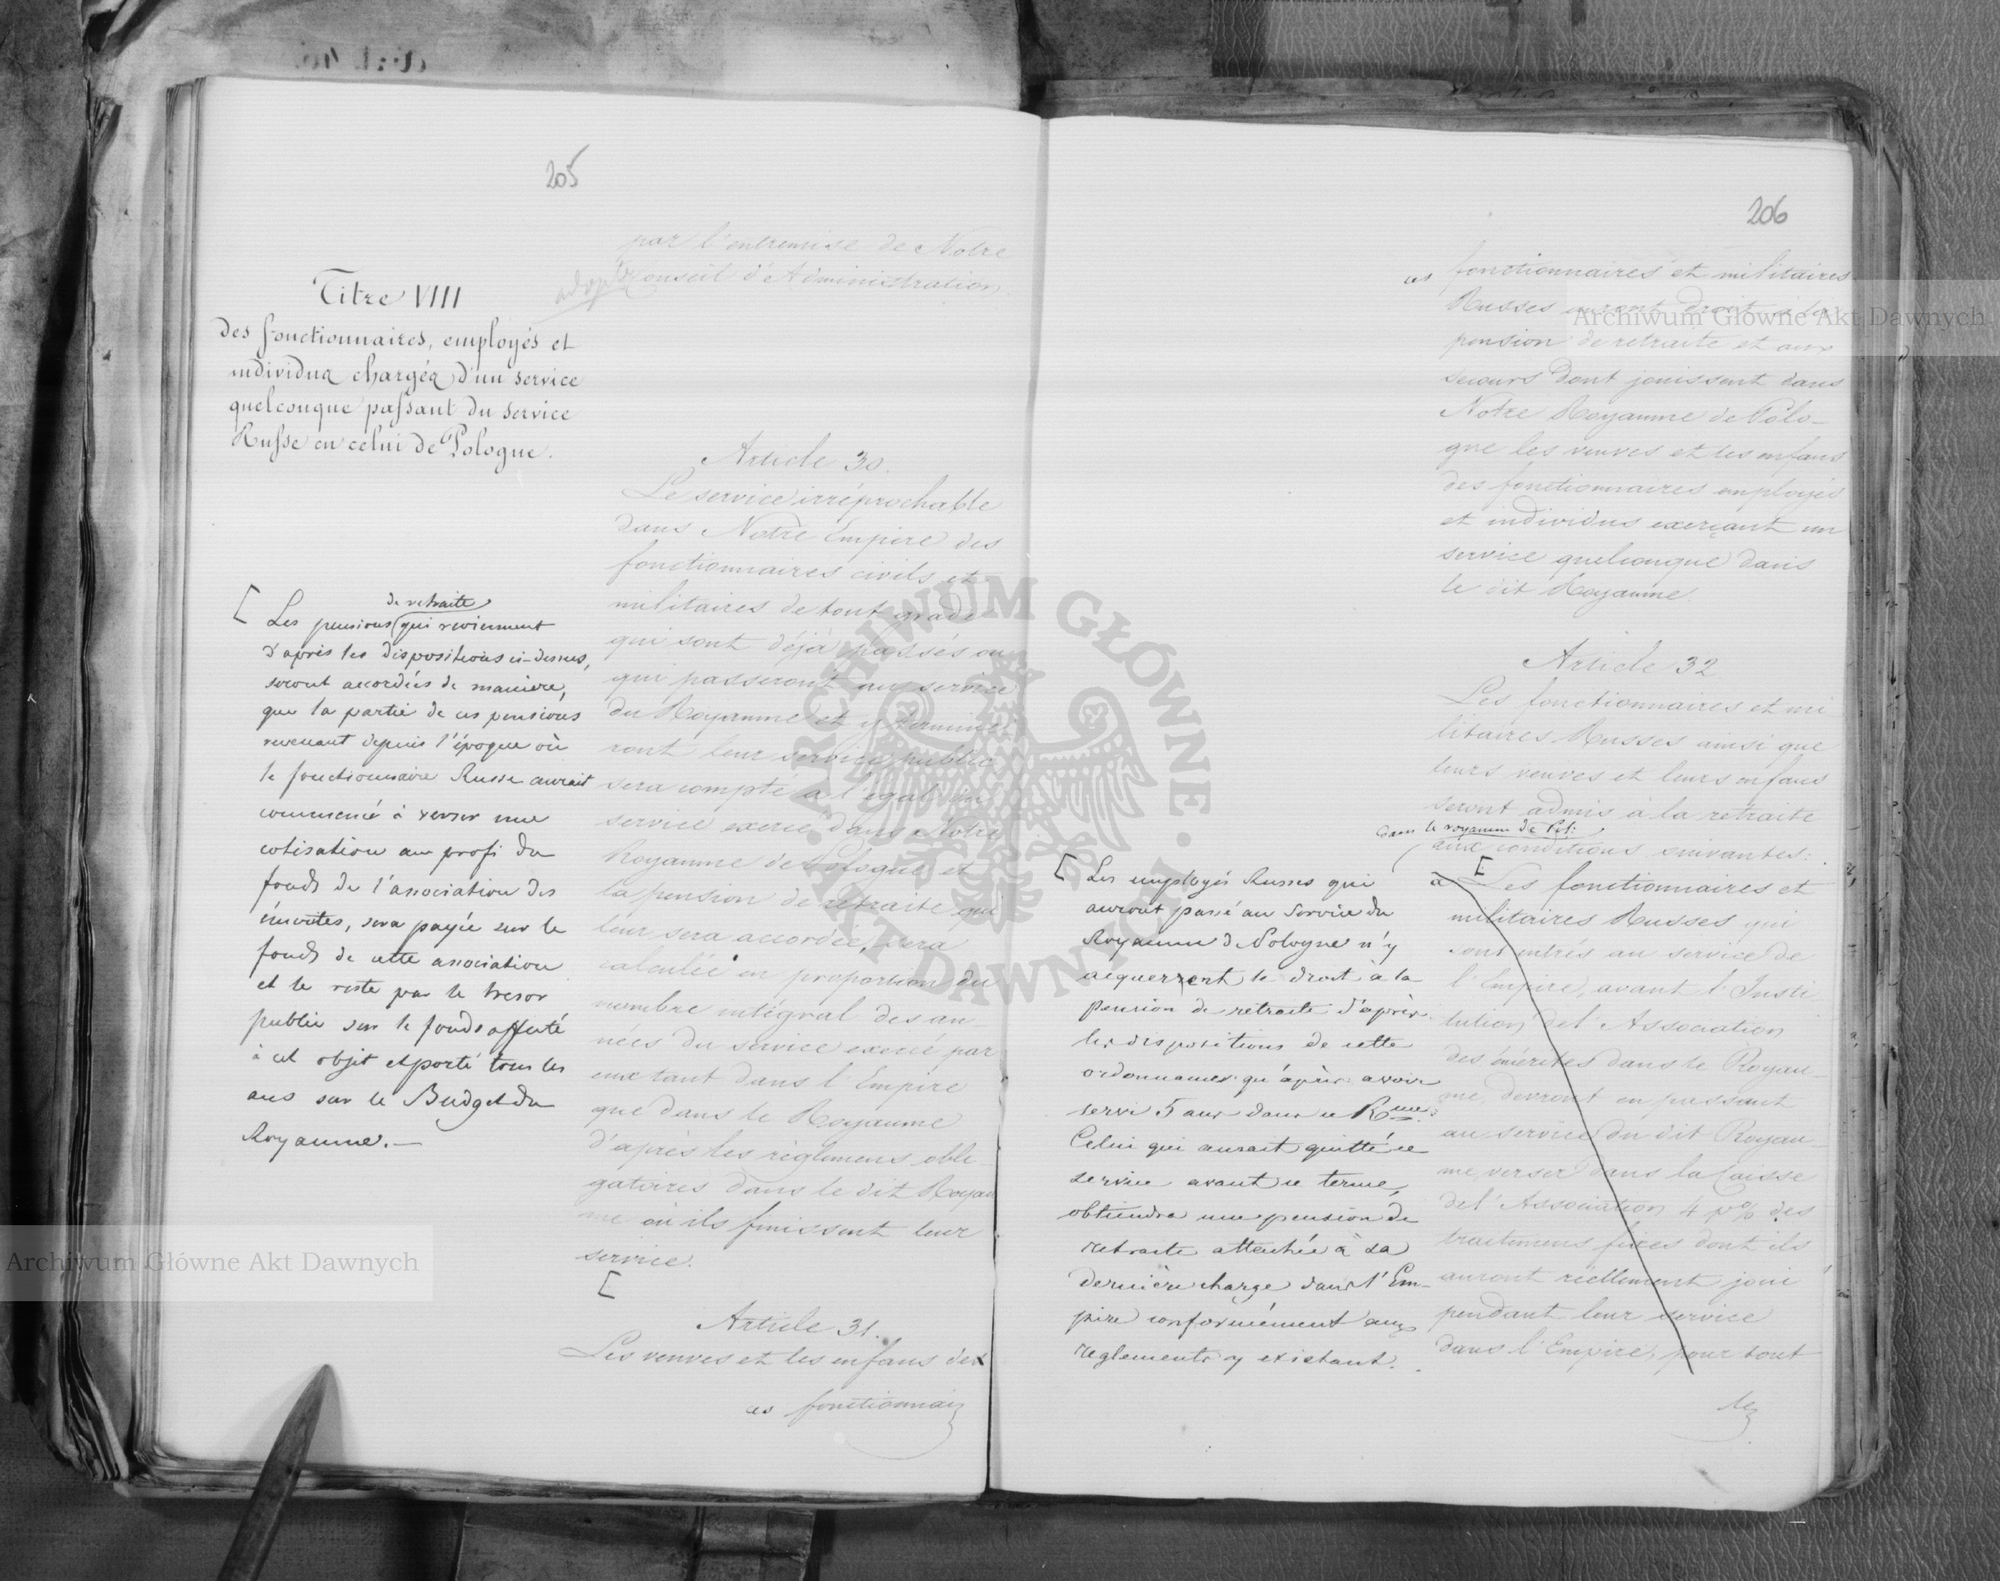 205
par l'entremise de Notre
Conseil d'Administration.
adopté
Titre VIII
des fonctionnaires, employés et
individus chargés d'un service
quelconque passant du service
Russe en celui de Pologne.
Article 30.
Le service irréprochable
dans Notre Empire des
fonctionnaires civils et
militaires de tout grade
qui sont déjà passés ou
qui passeront au service
du Royaume et y termine
ront leur service public
sera compté à l'égal du
service exercé dans Notre
Royaume de Pologne et
la pension de retraite qui
leur sera accordée, sera
calculée en proportion du
nombre intégral des an
nées du service exercé par
eux tant dans l'Empire
que dans le Royaume
d'après les règlemens obli-
gatoires dans le dit Royau
me où ils finissent leur
service.
[
[ Les pensions (qui reviennent
de retraite
d'après les dispositions ci-dessus,
seront accordées de manière,
que la partie de ces pensions
revenant depuis l'époque où
le fonctionnaire Russe aurait
commencé à verser une
cotisation au profi du
fonds de l'association des
émérites, sera payée sur le
fonds de cette association
et le reste par le tresor
public sur le fonds affecté
à cet objet et porté tous les
ans sur le Budget du
Royaume.—
Article 31.
Les veuves et les enfans des
ces fonctionnai
206
ces fonctionnaires et militaires
Russes auront droit à la
pension de retraite et aux
secours dont jouissent dans
Notre Royaume de Polo-
gne les veuves et les enfans
des fonctionnaires employés
et individus exerçant un
service quelconque dans
le dit Royaume.
Article 32.
Les fonctionnaires et mi
litaires Russes ainsi que
leurs veuves et leurs enfans
seront admis à la retraite
dans le royaume de Pol:
aux conditions suivantes:
a [ Les fonctionnaires et
militaires Russes qui
sont entrés au service de
l'Empire, avant l'Insti
tution de l'Association
des émérites dans le Royau-
me, devront en passant
au service du dit Royau-
me, verser dans la Caisse
de l'Association 4 p% des
traitemens fixes dont ils
auront réellement joui
pendant leur service
dans l'Empire, pour tout
le
[ Les employés Russes qui
auront passé au Service du
Royaume de Pologne n'y
acquerrent le droit à la
pension de retraite d'après
les dispositions de cette
ordonnance qu'après avoir
servi 5 ans dans ce Rme.
Celui qui aurait quitté ce
service avant ce terme,
obtiendra une pension de
retraite attachée à sa
dernière charge dans l'Em-
pire conformément aux
reglements y existant.
Archiwum Główne Akt Dawnych
Archiwum Główne Akt Dawnych
ARCHIWUM GŁÓWNE · AKT DAWNYCH ·